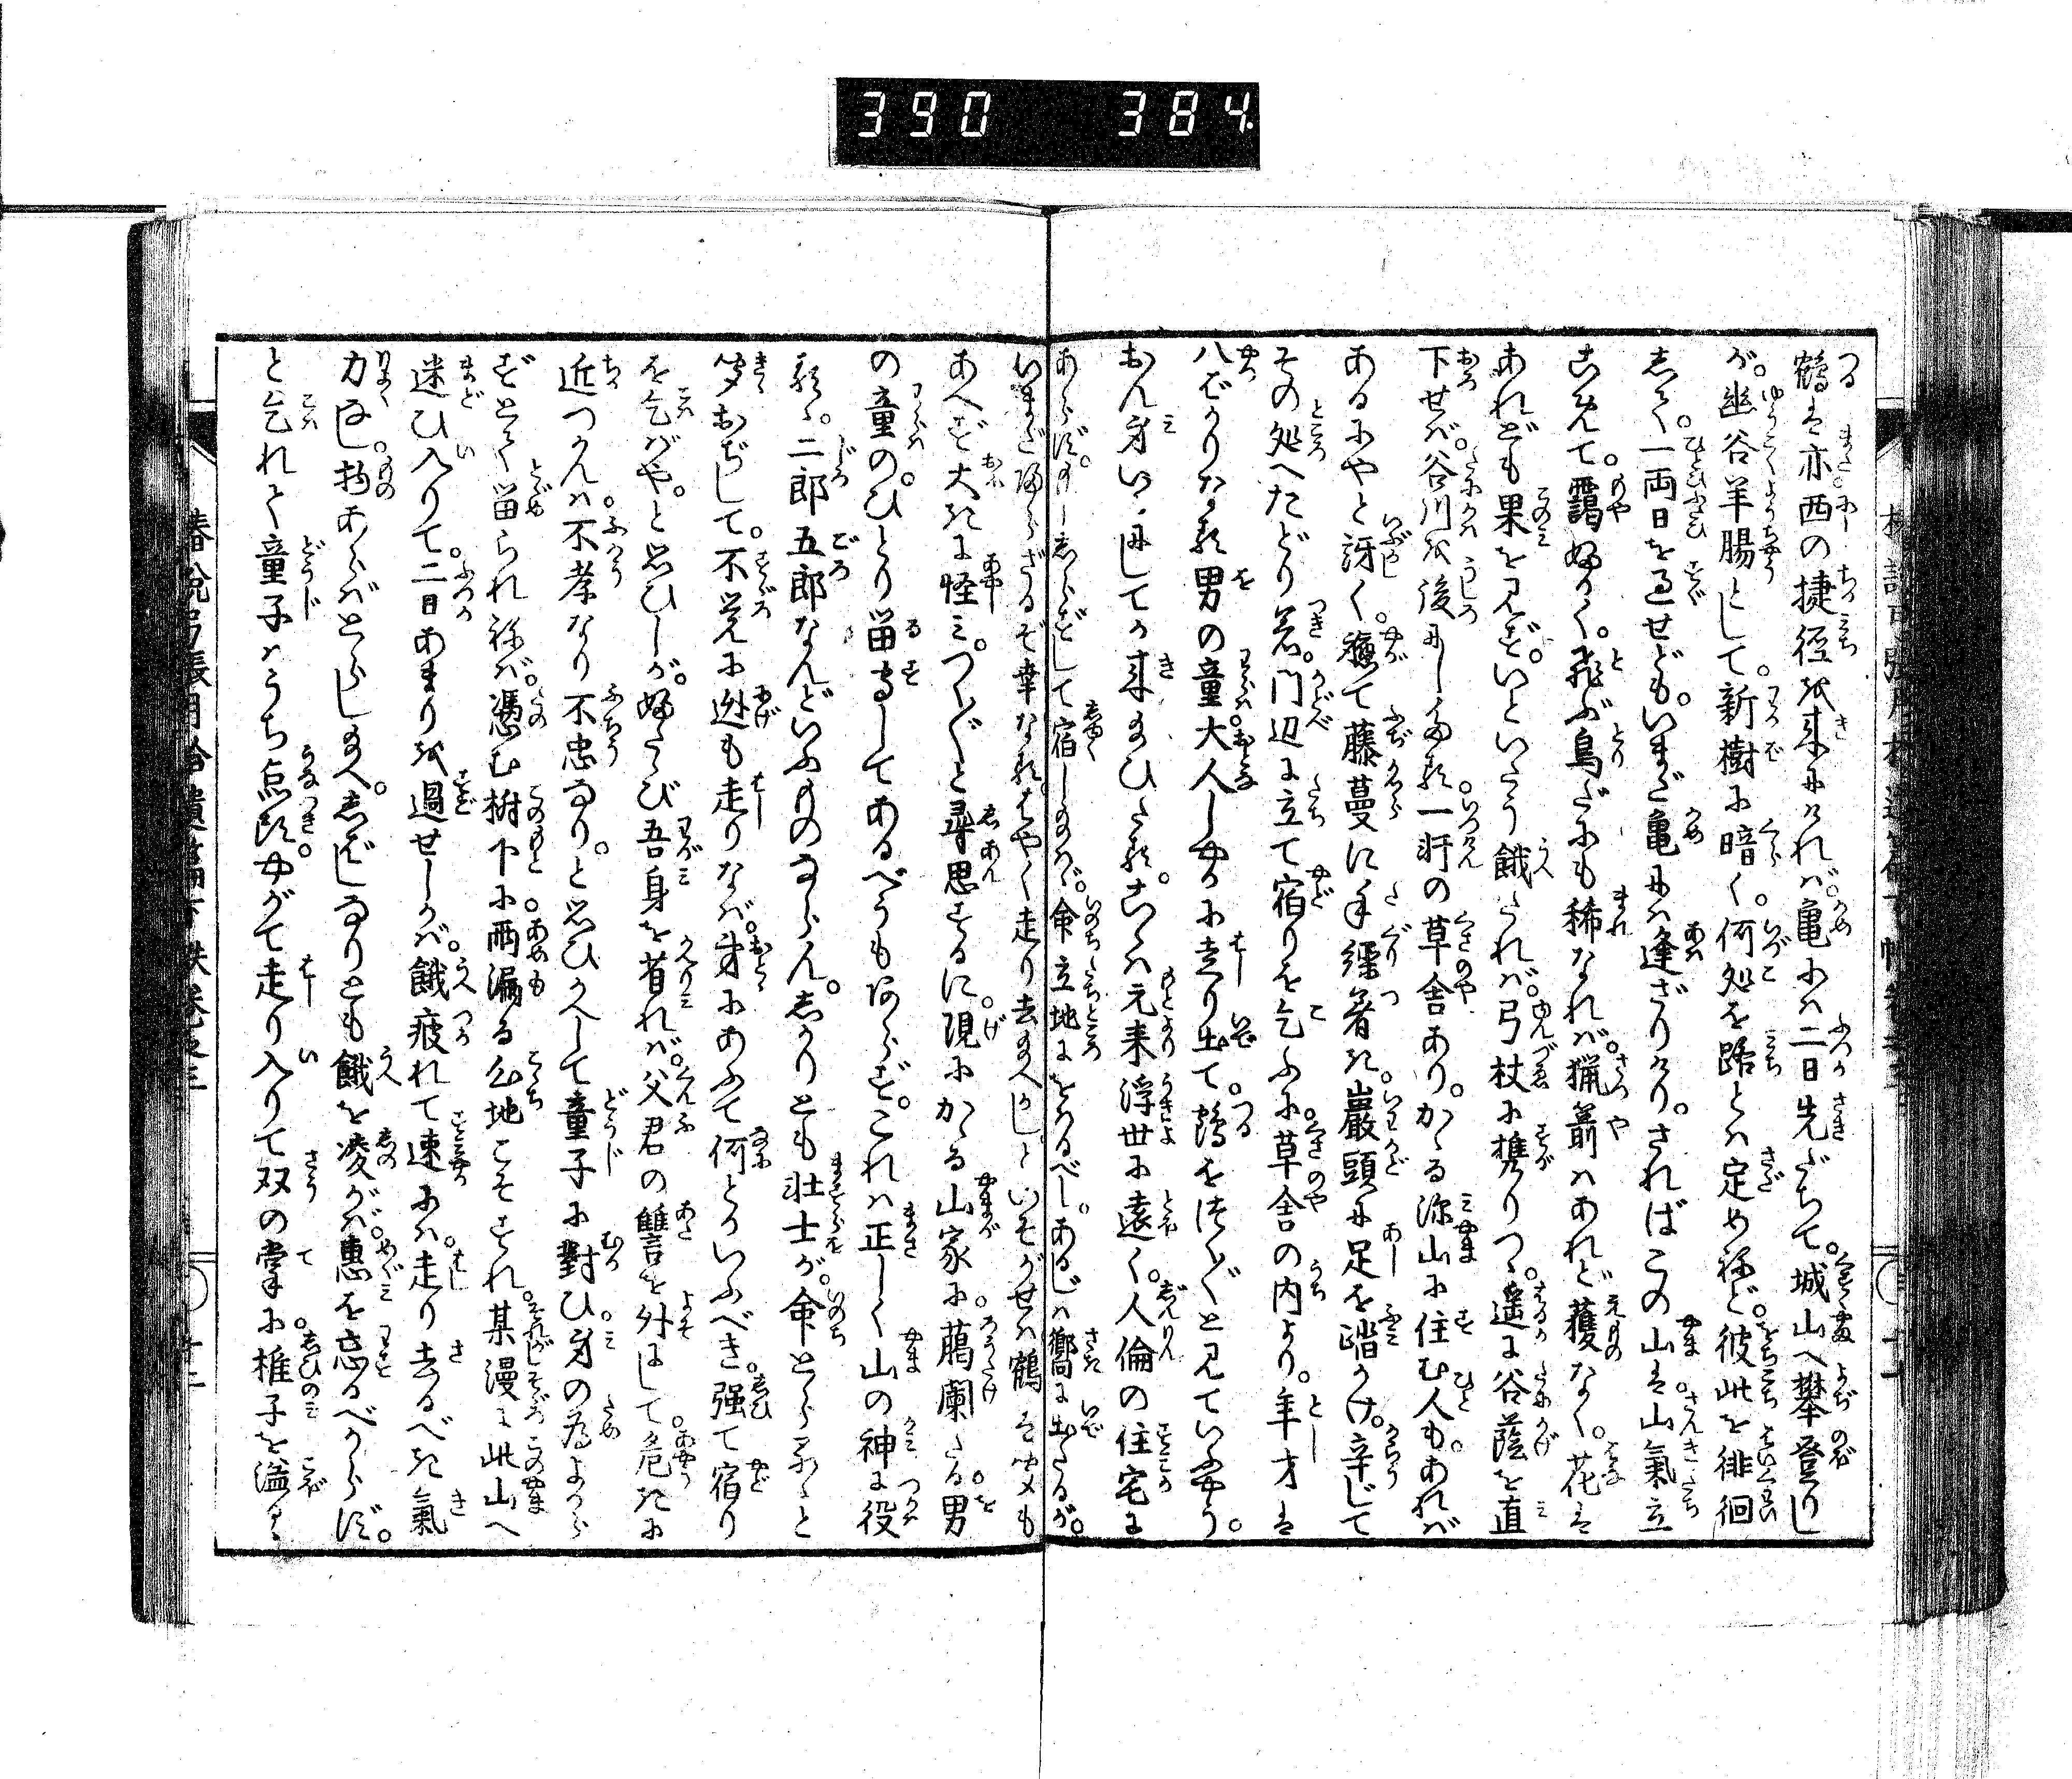 390 384
鶴は亦西の捷径を来にければ。亀には二日先だちて。城山へ攀登りし
が。幽谷羊腸として。新樹に暗く。何処を路とは定めねど。彼此を徘徊
して。一両日を過せども。いまだ亀には逢ざりけり。さればこの山は山氣立
こめて。靄ふかく。飛ぶ鳥だにも稀なれば。猟箭はあれど獲なく。花は
あれども果を見ず。いといたう餓たれば。弓杖に携りつゝ。遥に谷蔭を直
下せば。谷川を後にしたる。一軒の草舎あり。かゝる深山に住む人も。あれば
あるにやと訝く。軈て藤蔓に手繰着き。巖頭に足を踏かけ。辛じて
その処へたどり着。門辺に立て宿りを乞ふに。草舎の内より。年才は
八ばかりなる男の童大人しやかに走り出て。鶴をつく〴〵と見ていふやう。
おん身いかにしてか来給ひたる。こゝは元来浮世に遠く。人倫の住宅に
あらず。もししらずして宿し給はゞ。命立地に
いまだ帰らざるぞ幸なる。はやく走り去給へかしといそがせば鶴は聞も
あへず大きに怪み。つく〴〵と尋思するに。現にかゝる山家に。﨟闌たる男
の童の。ひとり留守してあるべうもあらず。これは正しく山の神に役
るゝ。二郎五郎なんどいふものならん。しかりとも壮士が。命とらるゝと
聞おぢして。不覚に迯も走りなば。弟にあふて何とかいふべき。強て宿り
を乞ばや。と思ひしが。ふたゝび吾身を省れば。父君の讐言を外にして危きに
近つかんは。不孝なり不忠なり。と思ひかへして童子に對ひ。身の為よから
ずとて留られねば。憑む樹下に雨漏る心地こそすれ。某漫に此山へ
迷ひ入りて。二日あまりを過せしかば。餓疲れて速には。走り去るべき氣
力なし。物あらばとらし給へ。しばしなりとも餓を凌がば。惠を忘るべからず。
と乞れて童子はうち点頭。やがて走り入りて双の掌に。椎子を溢るゝ